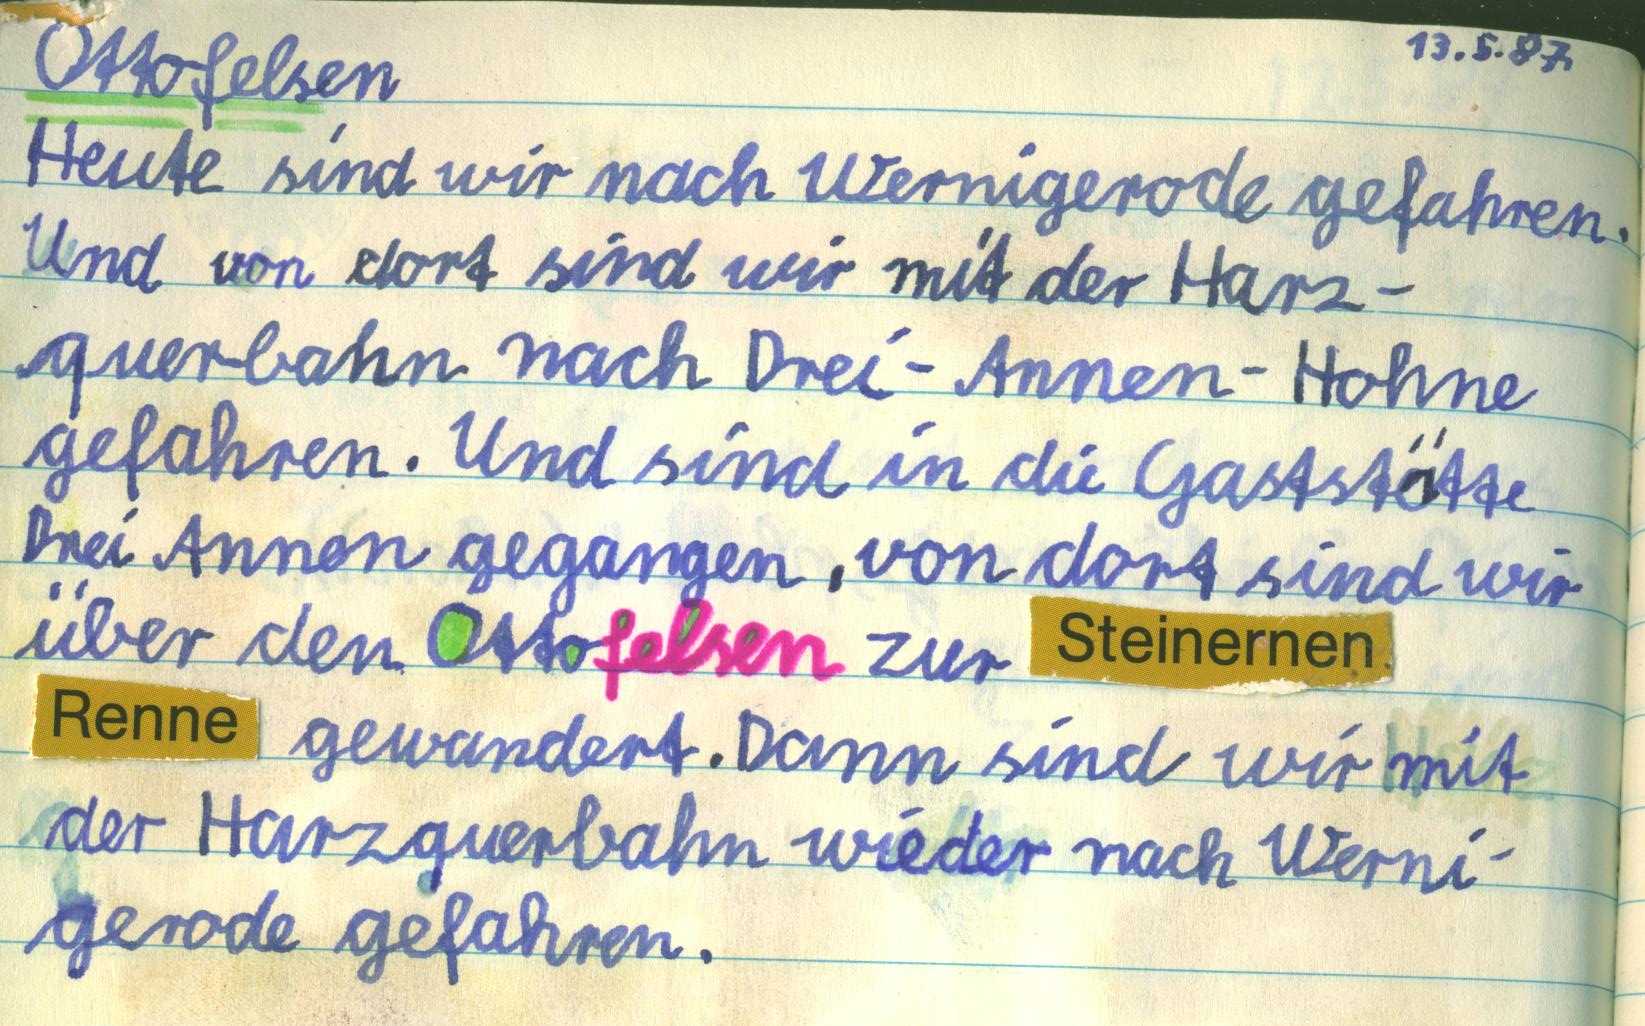 Ottofelsen 13.5.87
Heute sind wir nach Wernigerode gefahren.
Und von dort sind wir mit der Harz-
querbahn nach Drei-Annen-Hohne
gefahren. Und sind in die Gaststätte
Drei Annen gegangen, von dort sind wir
über den Ottofelsen zur Steinernen
Renne gewandert. Dann sind wir mit
der Harzquerbahn wieder nach Werni-
gerode gefahren.